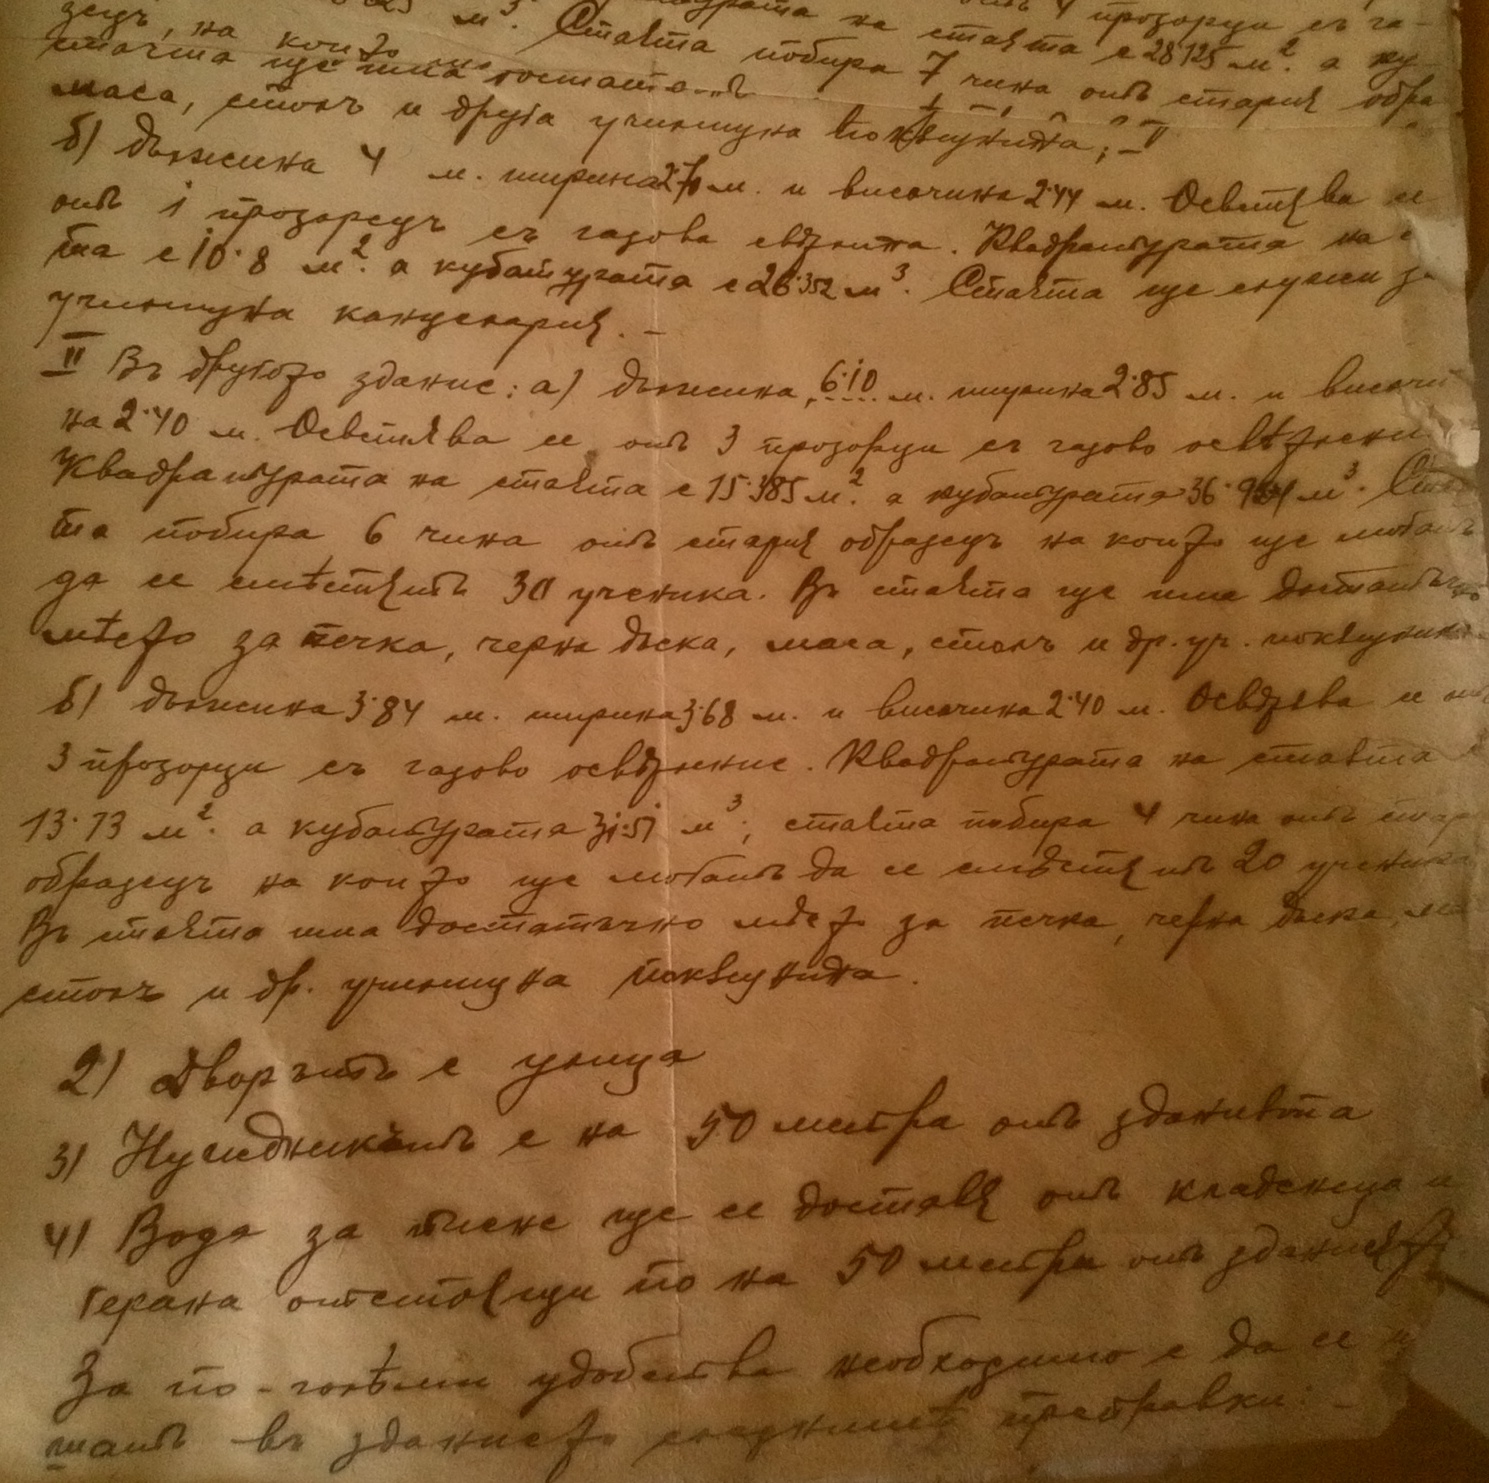 прозорци съ га-
м³. Стаята на стаята е 28·125 м². а ку-
зецъ, на които побира 7 чина отъ стария обра
стаята ще има достатъ
маса, столъ и друга училищна покѫщнина; –
б) дължина 4 м. ширина 2·70 м. и височина 2·44 м. Осветява се
отъ 1 прозорецъ съ газова свѣтлина. Квадратурата на с
та е 10·8 м². а кубатурата е 26·352 м³. Стаята ще служи за
училищна канцелария. –
II Въ другото здание: а) дължина, 6·10 м. ширина 2·85 м. и височи
на 2·40 м. Осветява се отъ 3 прозорци съ газово осветлени
Квадратурата на стаята е 15·385 м². а кубатурата 36·924 м³. Стая
та побира 6 чина отъ стария образецъ на които ще могатъ
да се смѣстятъ 30 ученика. Въ стаята ще има достатъчно
мѣсто за печка, черна дъска, маса, столъ и др. уч. покѫщнина.
б) дължина 3·84 м. ширина 3·68 м. и височина 2·40 м. Осветява се отъ
3 прозорци съ газово осветление. Квадратурата на стаята е
13·13 м². а кубатурата 31·51 м³; стаята побира 4 чина отъ стар
образецъ на които ще могатъ да се смѣстятъ 20 ученика
Въ стаята има достатъчно мѣсто за печка, черна дъска, ма
столъ и др. училищна покѫщнина.
2) Дворътъ е улица
3) Нуждникътъ е на 50 метра отъ зданията
4) Вода за пиене ще се доставя отъ кладенеца и
герана отстоящи по на 50 метра отъ зданията
За по-голѣми удобства необходимо е да се н
шатъ въ зданието следните преправки: –